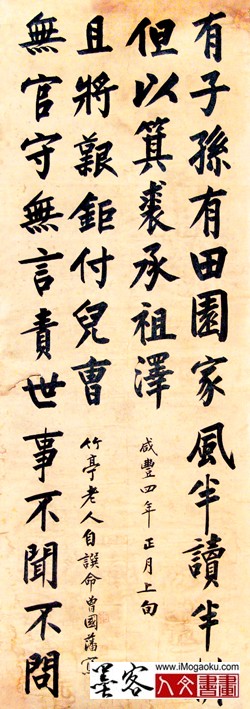 有子孫有田園家風半讀半
但以箕裘承祖澤
咸豐四年正月上旬
無官守無言責世事不聞不問
且將艱鉅付兒曹
竹亭老人自譔命曾國藩
www.iMogaoku.com
墨客
人文書畫